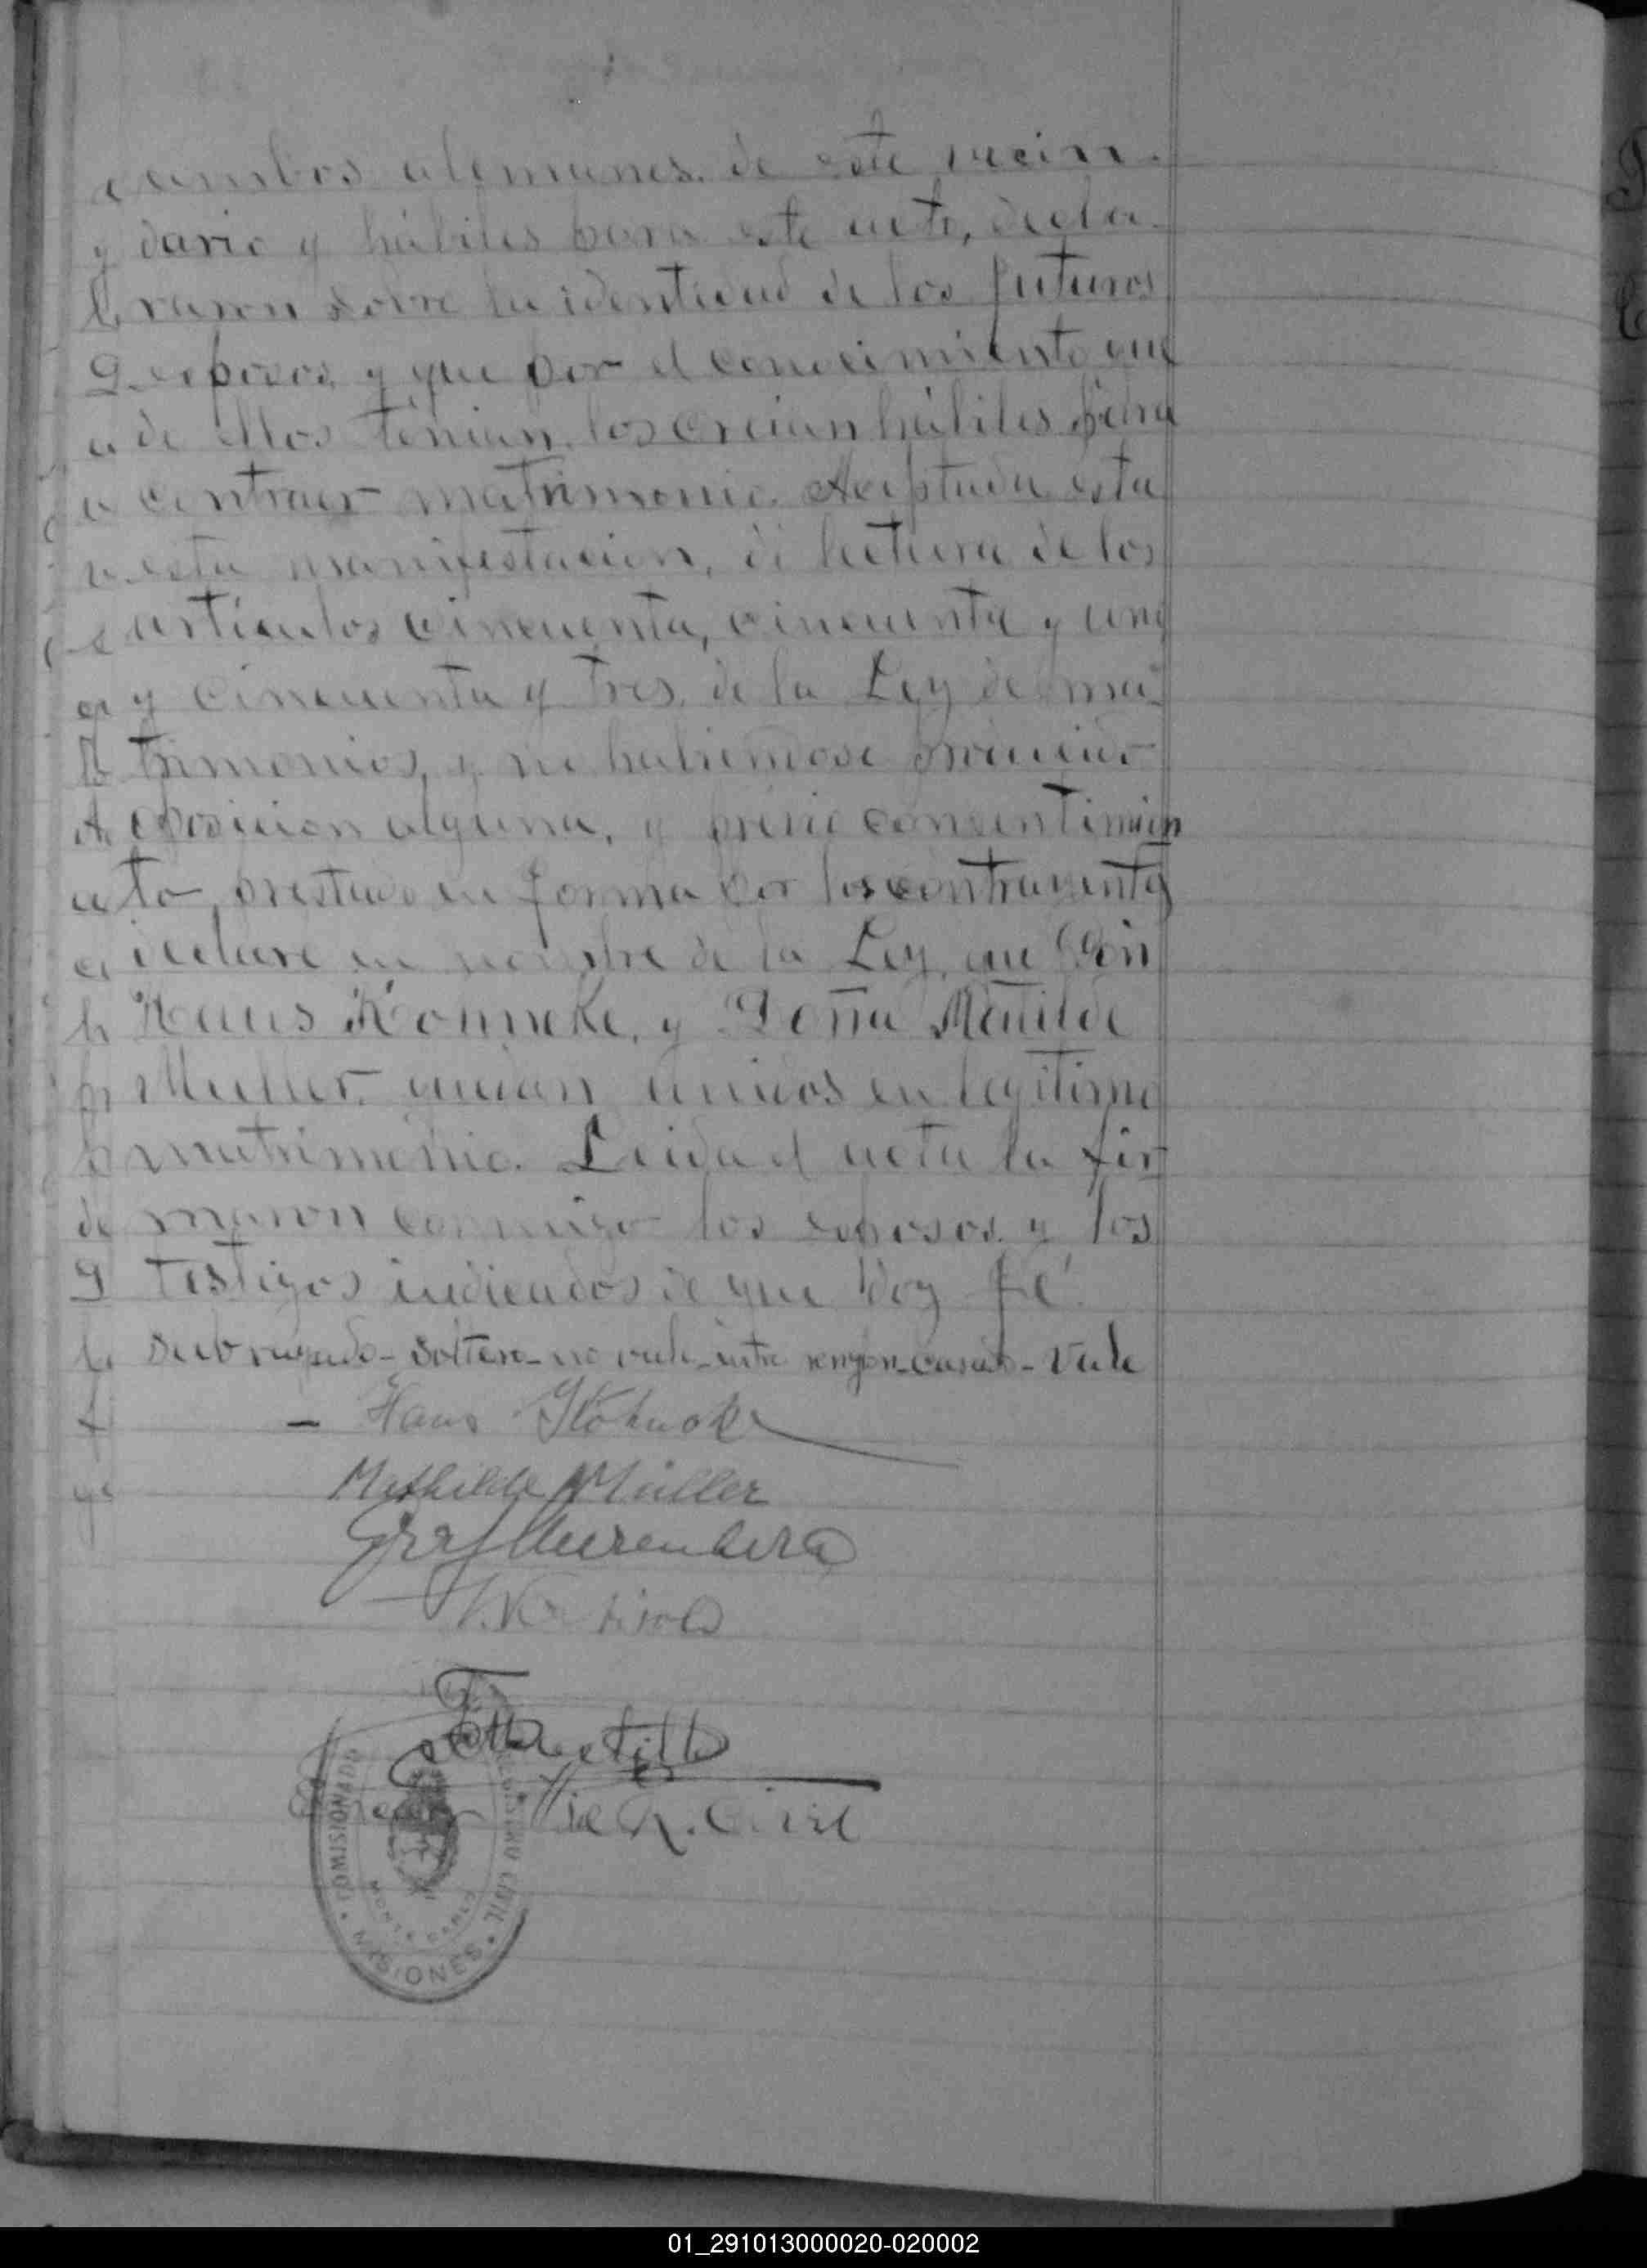 ambos alemanes, de este vecin-
dario y hábiles para este acto, decla-
raron sobre la identidad de los futuros
esposos, y que por el conocimiento que
de ellos tenian, los creian hábiles para
contraer matrimonio. Aceptada esta
esta manifestacion, di lectura de los
artículos cincuenta, cincuenta y uno
y cincuenta y tres, de la Ley de ma-
trimonios, y no habiendose producido
oposicion alguna, y previo consentimien
to, prestado en forma por los contrayentes
declaré en nombre de la Ley, que Don
Haus Konneke, y Doña Matilde
Muller, quedan unidos en legitimo
matrimonio. Leida el acta la fir
maron conmigo los esposos, y los
testigos indicados de que doy fé.
Sub rayado - soltero - no vale - entre renglon - casado - Vale
Hans Köhneke
Mathilde Müller
Graf
R. Civil
COMISIONADO REGISTRO CIVIL
MONTE CARLO
MISIONES
01_291013000020-020002